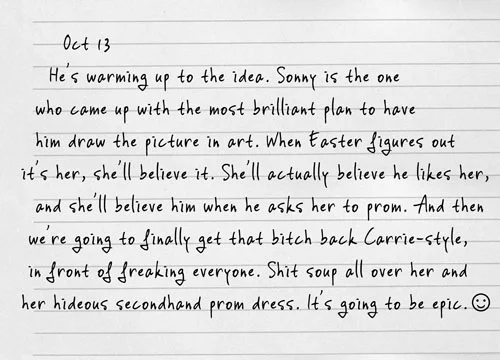 Oct 13
He's warming up to the idea. Sonny is the one
who came up with the most brilliant plan to have
him draw the picture in art. When Easter figures out
it's her, she'll believe it. She'll actually believe he likes her,
and she'll believe him when he asks her to prom. And then
we're going to finally get that bitch back Carrie-style,
in front of freaking everyone. Shit soup all over her and
her hideous secondhand prom dress. It's going to be epic. ☺